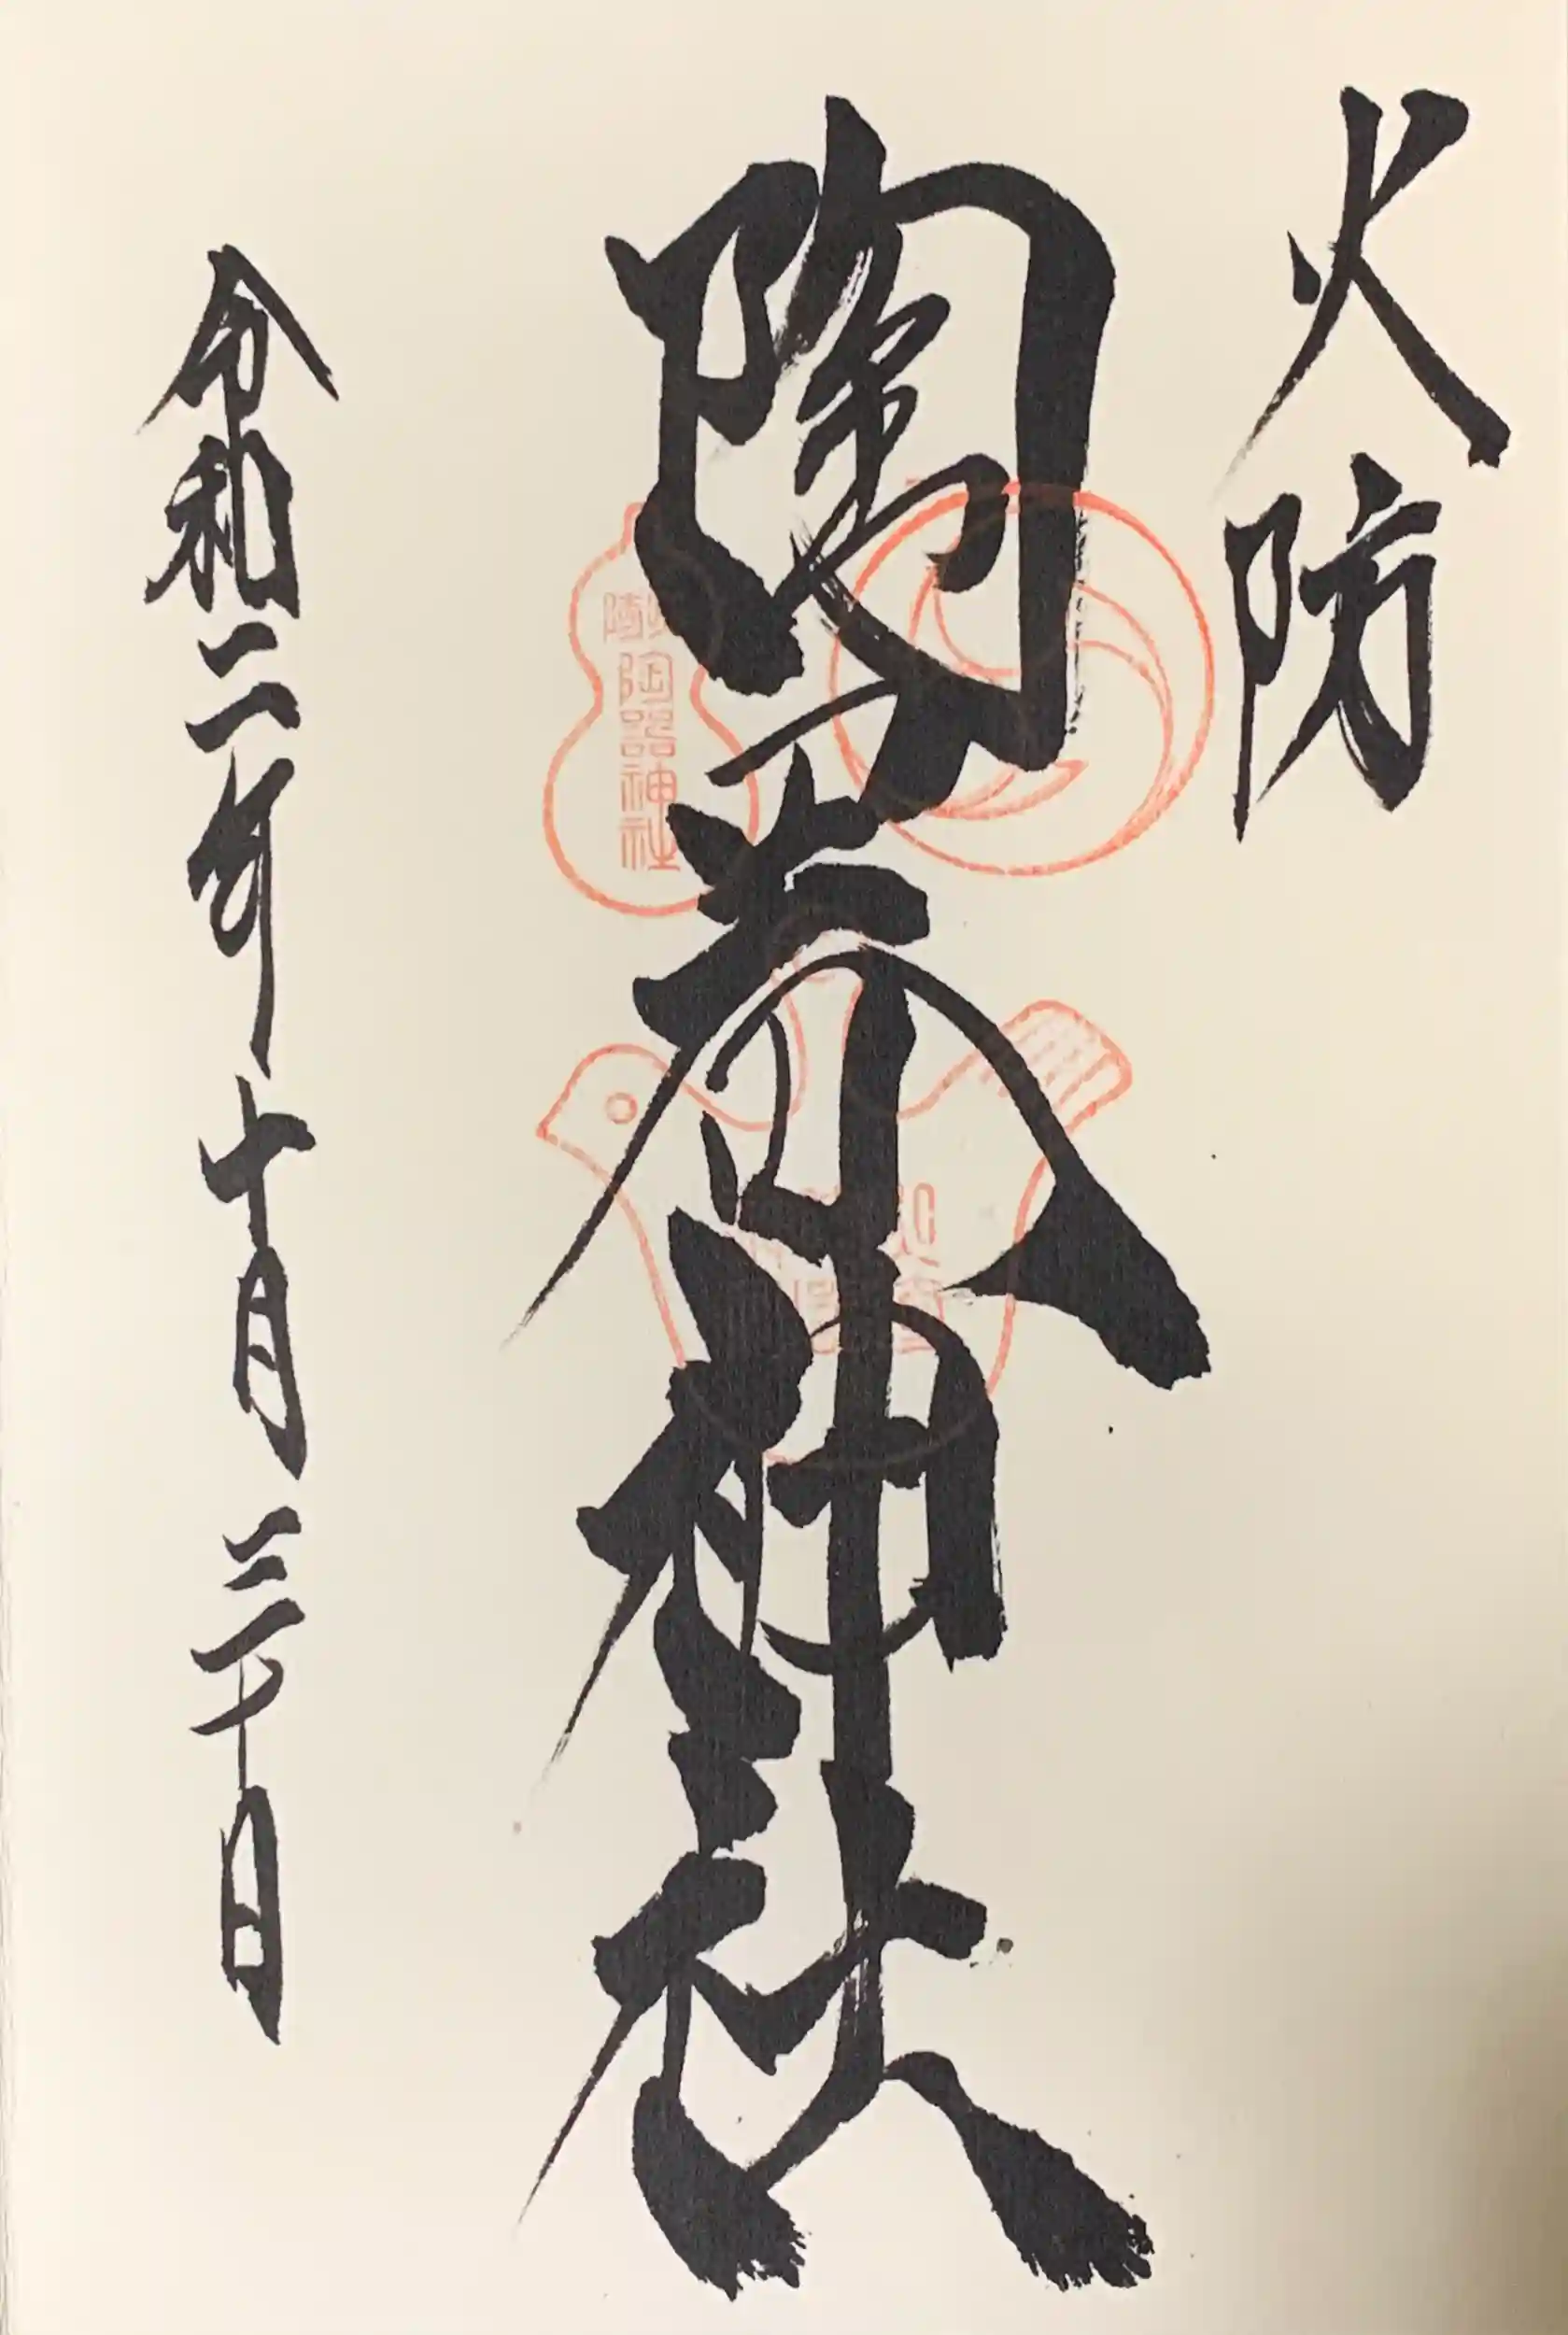 火防
陶器神社
令和二年十月三十日
陶器神社